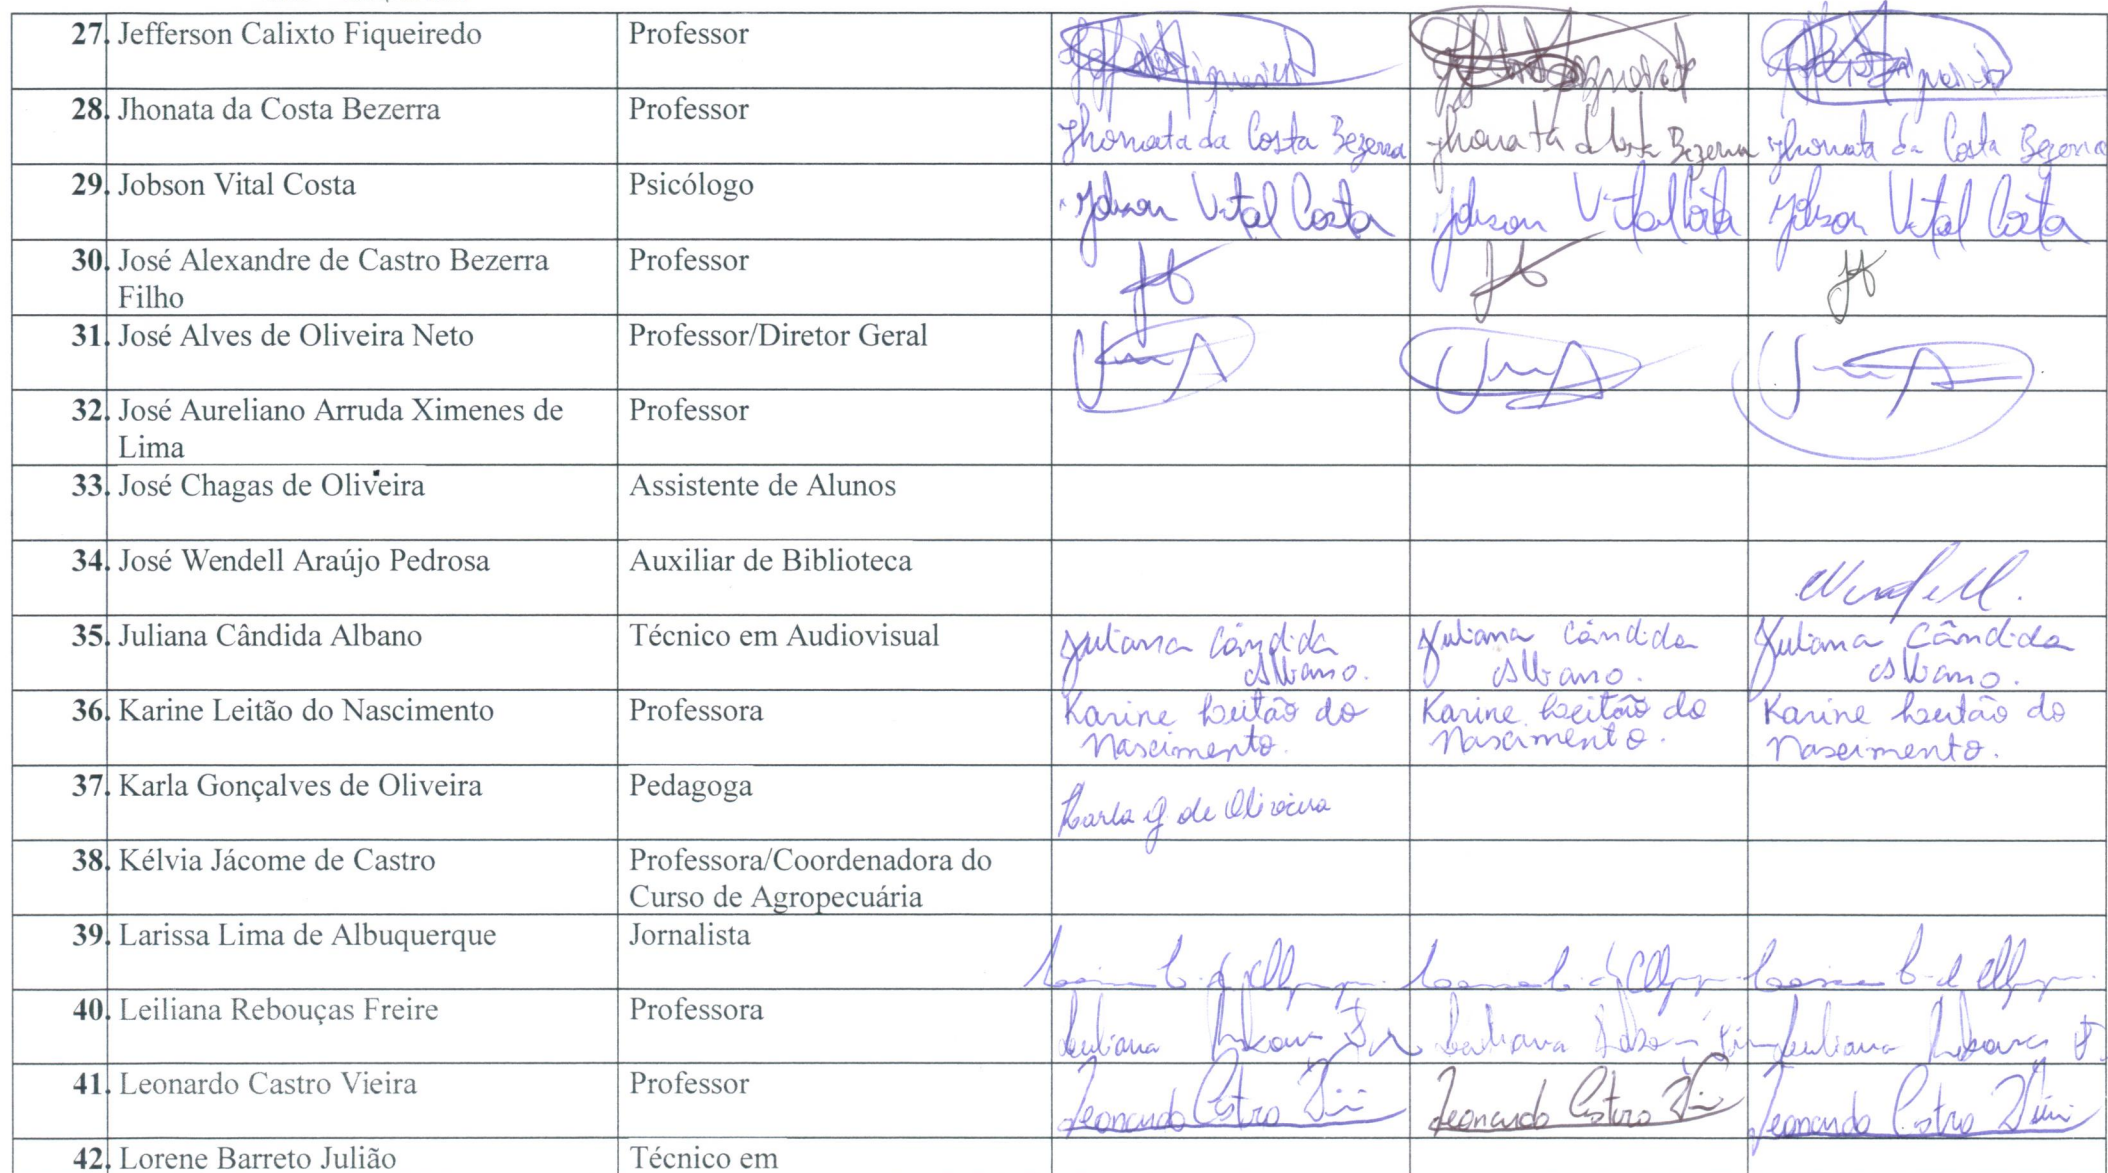 27. Jefferson Calixto Fiqueiredo Professor
28. Jhonata da Costa Bezerra Professor
Jhonata da Costa Bezerra Jhonata da Costa Bezerra Jhonata da Costa Bezerra
29. Jobson Vital Costa Psicólogo
Jobson Vital Costa Jobson Vital Costa Jobson Vital Costa
30. José Alexandre de Castro Bezerra Professor
Filho
31. José Alves de Oliveira Neto Professor/Diretor Geral
32. José Aureliano Arruda Ximenes de Professor
Lima
33. José Chagas de Oliveira Assistente de Alunos
34. José Wendell Araújo Pedrosa Auxiliar de Biblioteca
Wendell.
35. Juliana Cândida Albano Técnico em Audiovisual
Juliana Cândida Juliana Cândida Juliana Cândida
Albano. Albano. Albano.
36. Karine Leitão do Nascimento Professora
Karine Leitão do Karine Leitão do Karine Leitão do
Nascimento. Nascimento. Nascimento.
37. Karla Gonçalves de Oliveira Pedagoga
Karla G. de Oliveira
38. Kélvia Jácome de Castro Professora/Coordenadora do
Curso de Agropecuária
39. Larissa Lima de Albuquerque Jornalista
40. Leiliana Rebouças Freire Professora
41. Leonardo Castro Vieira Professor
Leonardo Castro Leonardo Castro Leonardo Castro
42. Lorene Barreto Julião Técnico em